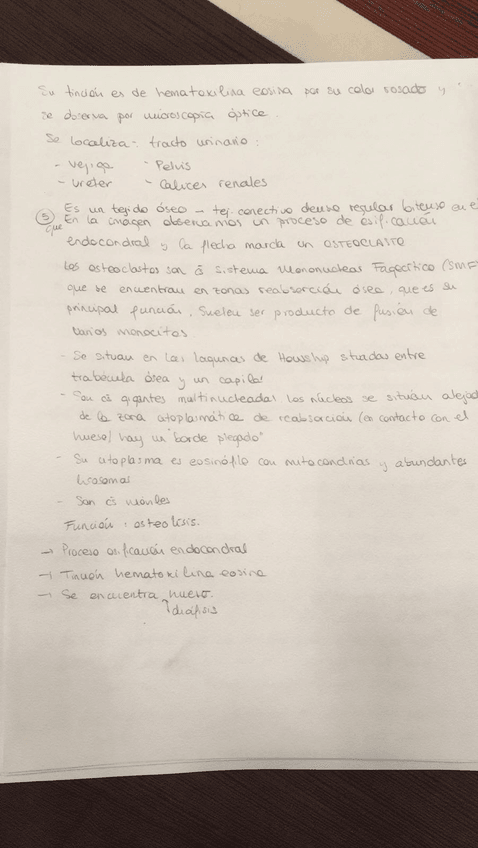 Su tinción es de hematoxilina eosina por su color rosado y
se observa por microscopía óptica.
Se localiza: tracto urinario:
- Vejiga - Pelvis
- Uréter - Cálices renales
⑤ Es un tejido óseo - tej. conectivo denso regular en el
que En la imagen observamos un proceso de osificación
endocondral y la flecha marca un OSTEOCLASTO
Los osteoclastos son Sistema Mononuclear Fagocítico (SMF)
que se encuentran en zonas reabsorción ósea, que es su
principal función. Suelen ser producto de fusión de
varios monocitos
- Se situan en las lagunas de Howship situadas entre
trabécula ósea y un capilar
- Son gigantes multinucleadas los núcleos se situán
de la zona citoplasmática de reabsorción (en contacto con el
hueso) hay un "borde plegado"
- Su citoplasma es eosinófilo con mitocondrias y abundantes
lisosomas
- Son móviles
Función: osteolisis.
→ Proceso osificación endocondral
→ Tinción hematoxilina eosina
→ Se encuentra hueso.
diáfisis